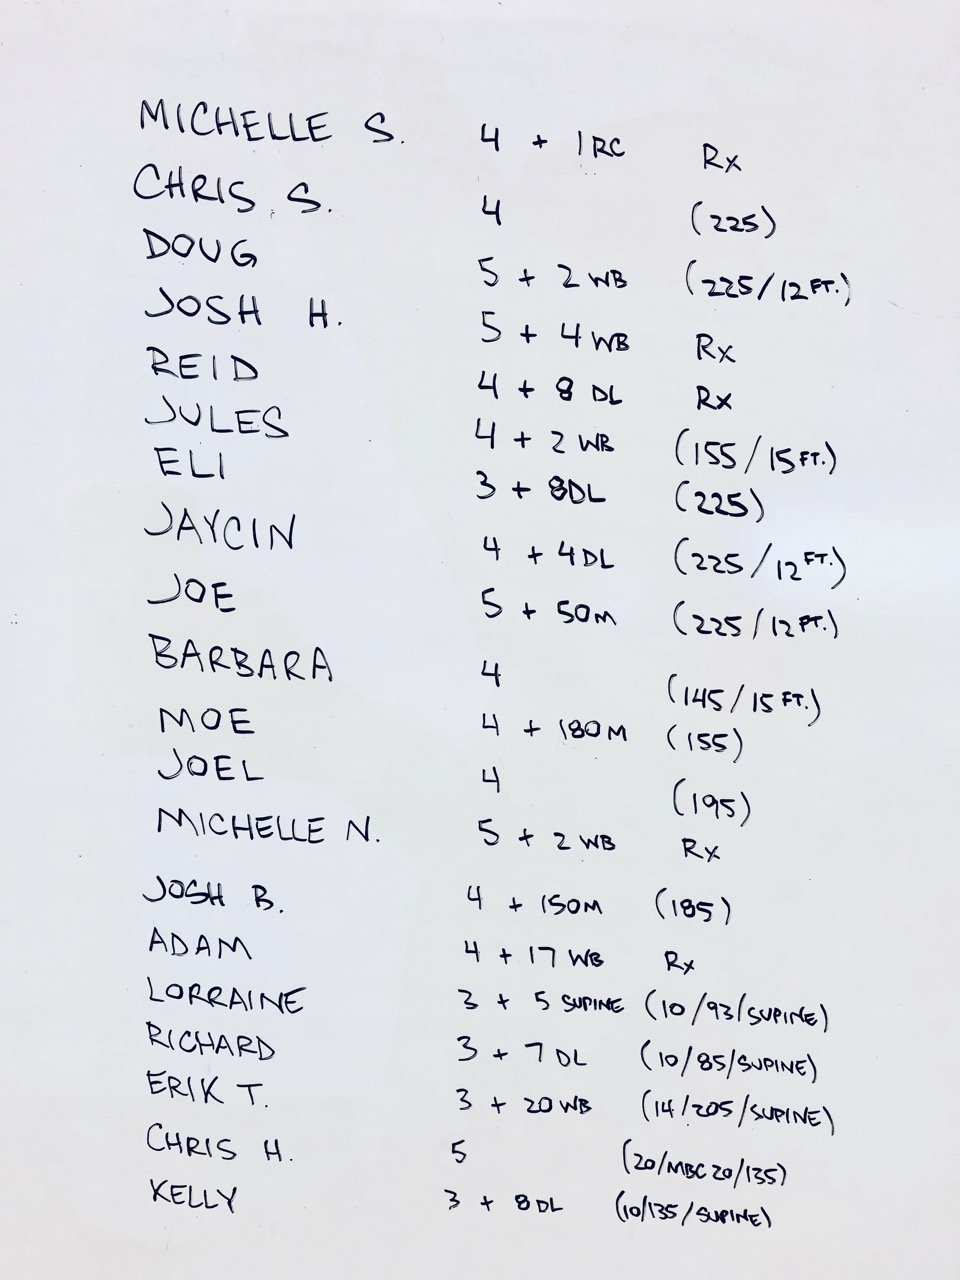 MICHELLE S. 4 + 1 RC Rx
CHRIS S. 4 (225)
DOUG 5 + 2 WB (225/12 FT.)
JOSH H. 5 + 4 WB Rx
REID 4 + 8 DL Rx
JULES 4 + 2 WB (155/15 FT.)
ELI 3 + 8 DL (225)
JAYCIN 4 + 4 DL (225/12 FT.)
JOE 5 + 50M (225/12 FT.)
BARBARA 4 (145/15 FT.)
MOE 4 + 180M (155)
JOEL 4 (195)
MICHELLE N. 5 + 2 WB Rx
JOSH B. 4 + 150M (185)
ADAM 4 + 17 WB Rx
LORRAINE 3 + 5 SUPINE (10/93/SUPINE)
RICHARD 3 + 7 DL (10/85/SUPINE)
ERIK T. 3 + 20 WB (14/205/SUPINE)
CHRIS H. 5 (20/MBC 20/135)
KELLY 3 + 8 DL (10/135/SUPINE)